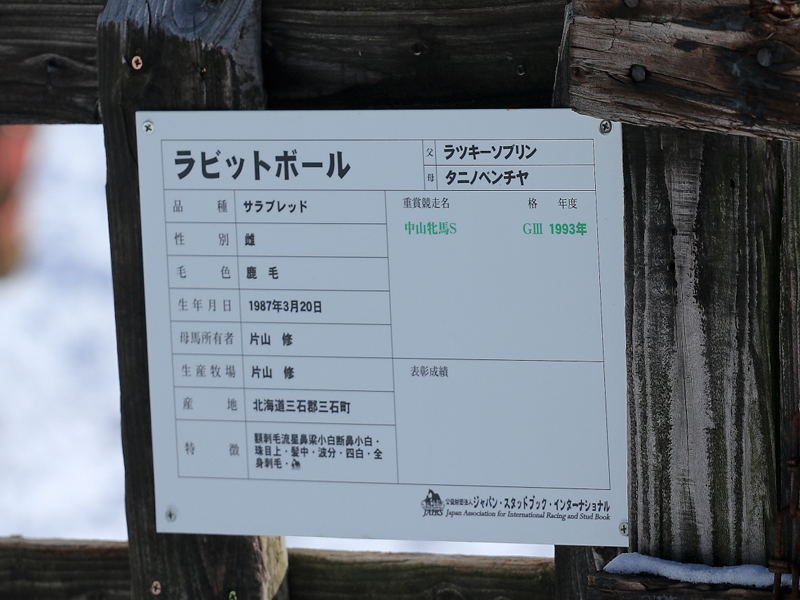 ラビットボール
父 ラツキーソブリン
母 タニノベンチヤ
品種 サラブレッド
性別 雌
毛色 鹿毛
生年月日 1987年3月20日
母馬所有者 片山 修
生産牧場 片山 修
産地 北海道三石郡三石町
特徴 額刺毛流星鼻梁小白断鼻小白・
珠目上・髪中・波分・四白・全
身刺毛・
重賞競走名 格 年度
中山牝馬S GⅢ 1993年
表彰成績
公益財団法人 ジャパン・スタッドブック・インターナショナル
JAIRS Japan Association for International Racing and Stud Book